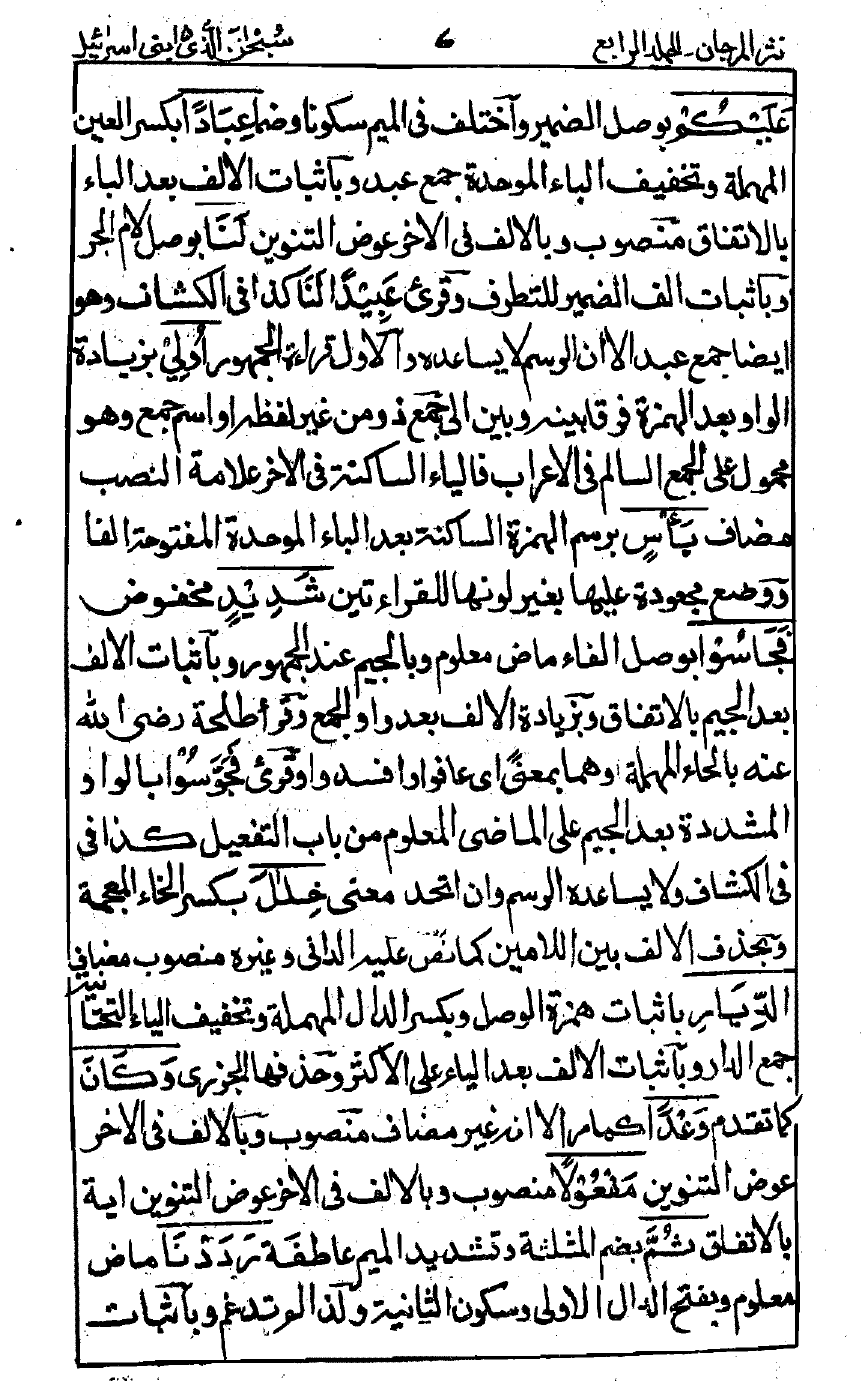 نثر المرجان ـ المجلد الرابع 6 سبحن الذى ١٥ بنى اسرائيل
عَلَيْكُمْ بوصل الضمير وآختلف فى الميم سكونا وضما عِبَادًا بكسر العين
المهملة وتخفيف الباء الموحدة جمع عبد وبآثبات الالف بعد الباء
بالاتفاق منصوب وبالالف فى الاخر عوض التنوين لَنَا بوصل لام الجر
وبآثبات الف الضمير للتطرف وقرئ عَبِيْدًا لَنَا كذا فى الكشاف وهو
ايضا جمع عبد الا ان الرسم لا يساعده وآلاول قراءة الجمهور أُولِيْ بزيادة
الواو بعد الهمزة فرقا بينه وبين الى جمع ذو من غير لفظه او اسم جمع وهو
محمول على الجمع السالم فى الاعراب فالياء الساكنة فى الاخر علامة النصب
مضاف بَأْسٍ برسم الهمزة الساكنة بعد الباء الموحدة المفتوحة الفا
ووضع مجعودة عليها بغير لونها للقراءتين شَدِيْدٍ مخفوض
فَجَاسُوْا بوصل الفاء ماض معلوم وبالجيم عند الجمهور وبآثبات الالف
بعد الجيم بالاتفاق وبزيادة الالف بعد واو الجمع وقرأ طلحة رضى الله
عنه بالحاء المهملة وهما بمعنًى اى عاثوا وافسدوا وقرئ فَجَوَّسُوْا بالواو
المشددة بعد الجيم على الماضى المعلوم من باب التفعيل كذا فى
فى الكشاف ولا يساعده الرسم وان اتحد معنى خِلٰلَ بكسر الخاء المعجمة
وبحذف الالف بين اللامين كما نص عليه الدانى وغيره منصوب مضاف
الدِّيَارِ باثبات همزة الوصل وبكسر الدال المهملة وتخفيف الياء التحتانية
جمع الدار وبآثبات الالف بعد الياء على الاكثر وحذفها الجزرى وَكَانَ
كما تقدم وَعْدًا كما مر الا انه غير مضاف منصوب وبالالف فى الاخر
عوض التنوين مَفْعُوْلًا منصوب وبالالف فى الاخر عوض التنوين اية
بالاتفاق ثُمَّ بضم المثلثة وتشديد الميم عاطفة رَدَدْنَا ماض
معلوم وبفتح الدال الاولى وسكون الثانية ولذا لم تدغم وبآثبات